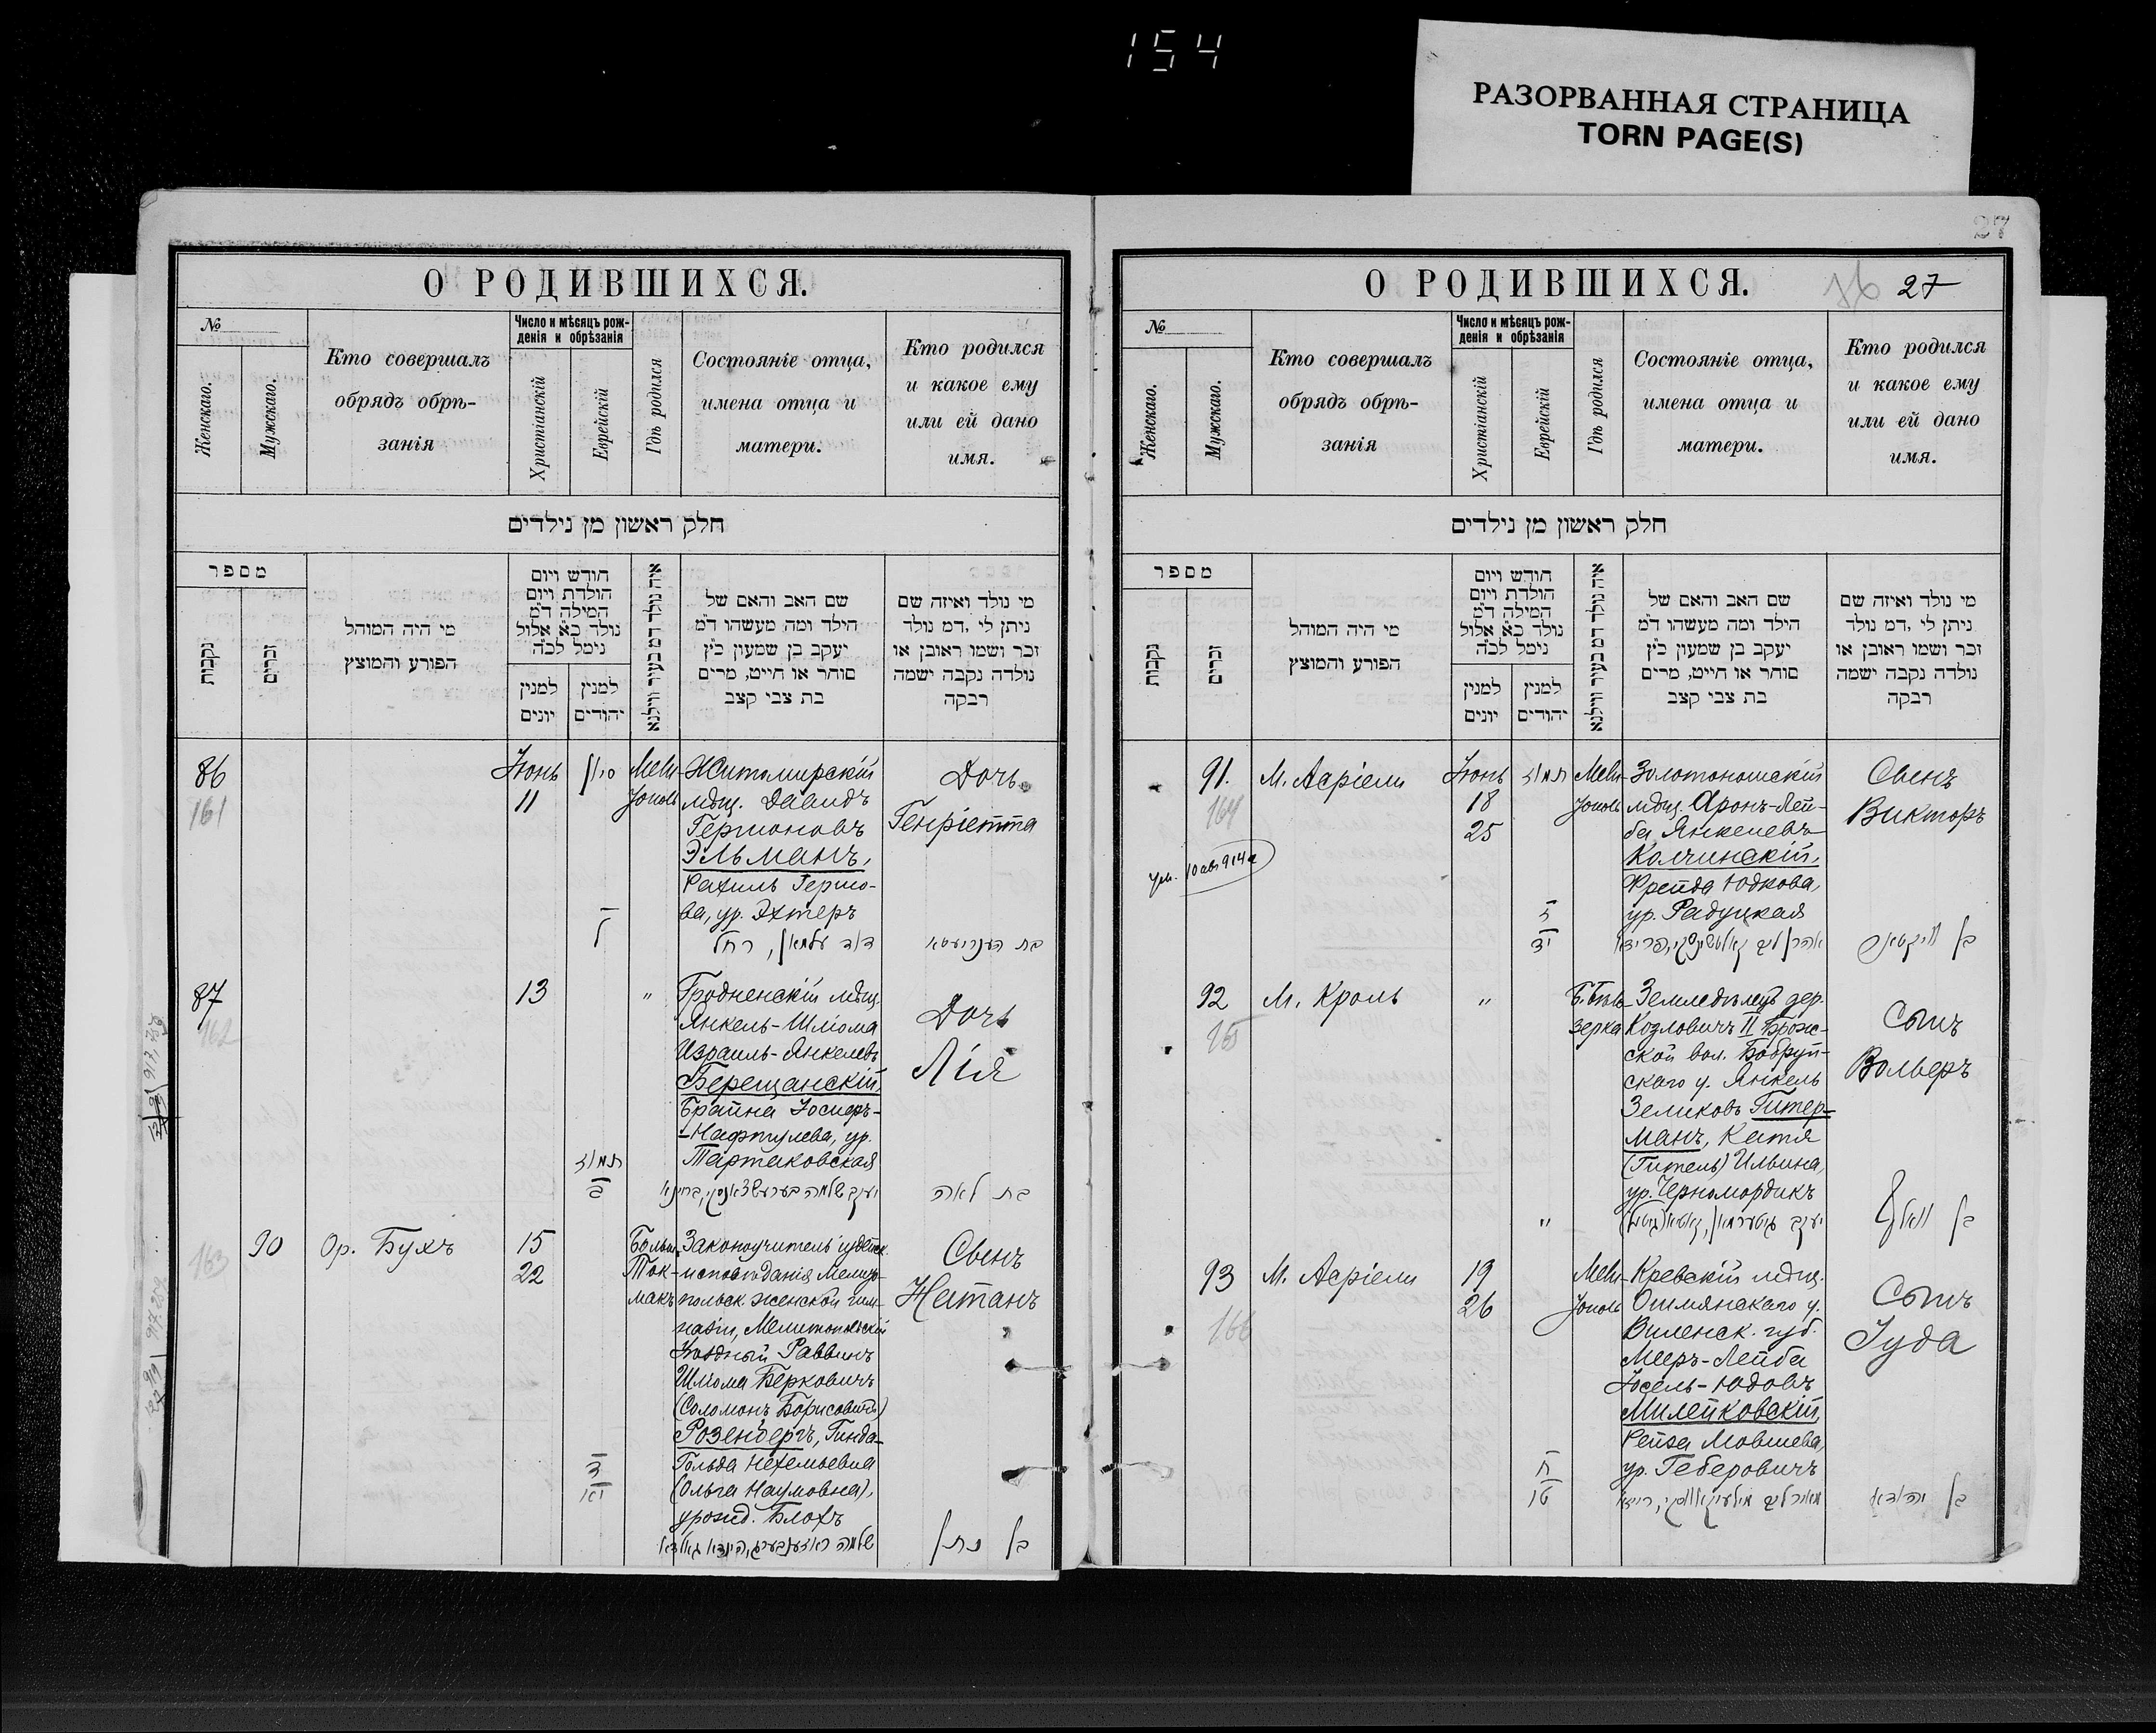 154
РАЗОРВАННАЯ СТРАНИЦА
TORN PAGE(S)
О РОДИВШИХСЯ.
№
Женскаго.
Мужскаго.
Кто совершалъ
обрядъ обрѣ-
занія
Число и мѣсяцъ рож-
денія и обрѣзанія
Христіанскій
Еврейскій
Гдѣ родился
Состояніе отца,
имена отца и
матери.
Кто родился
и какое ему
или ей дано
имя.
חלק ראשון מן נילדים
מספר
נקבות
זכרים
מי היה המוהל
הפורע והמוצץ
חודש ויום
הולדת ויום
המילה ד״מ
נולד כ״א אלול
נימל לכ״ה
למנין
יונים
למנין
יהודים
איה נולד דמ בעיר ווילנא
שם האב והאם של
הילד ומה מעשהו ד״מ
יעקב בן שמעון כ״ץ
סוחר או חייט, מרים
בת צבי קצב
מי נולד ואיזה שם
ניתן לו, דמ נולד
זכר ושמו ראובן או
נולדה נקבה ישמה
רבקה
86
161
Іюнь
11
סיון
ל
Мели-
тополь
Житомирскій
мѣщ. Давидъ
Гершоновъ
Эльманъ,
Рахиль Гершо-
ва, ур. Эхтеръ
דוד עלמאן, רחל
Дочь
Генріетта
בת הענריעטא
87
162
13
תמוז
ב
"
Гродненскій мѣщ.
Янкель-Шліома
Израиль-Янкелевъ
Берещанскій,
Брайна Іосифъ-
-Нафтулева, ур.
Тартаковская
Дочь
Лія
בת לאה
163
90
Ор. Бухъ
15
22
ד
יא
Больш.
Ток-
макъ
Законоучитель іудейск.
исповѣданія Мелито-
польск. женской гим-
назіи, Мелитопольскій
Уѣздный Раввинъ
Шліома Берковичъ
(Соломонъ Борисовичъ)
Розенбергъ, Гинда-
Гольда Нехемьевна
(Ольга Наумовна),
урожд. Блохъ
Сынъ
Натанъ
בן נתן
27
О РОДИВШИХСЯ.
27
№
Женскаго.
Мужскаго.
Кто совершалъ
обрядъ обрѣ-
занія
Число и мѣсяцъ рож-
денія и обрѣзанія
Христіанскій
Еврейскій
Гдѣ родился
Состояніе отца,
имена отца и
матери.
Кто родился
и какое ему
или ей дано
имя.
חלק ראשון מן נילדים
מספר
נקבות
זכרים
מי היה המוהל
הפורע והמוצץ
חודש ויום
הולדת ויום
המילה ד״מ
נולד כ״א אלול
נימל לכ״ה
למנין
יונים
למנין
יהודים
איה נולד דמ בעיר ווילנא
שם האב והאם של
הילד ומה מעשהו ד״מ
יעקב בן שמעון כ״ץ
סוחר או חייט, מרים
בת צבי קצב
מי נולד ואיזה שם
ניתן לו, דמ נולד
זכר ושמו ראובן או
נולדה נקבה ישמה
רבקה
91.
164
ум. 10 авг 914 г
М. Асріели
Іюнь
18
25
תמוז
ז
יד
Мели-
тополь
Золотоношскій
мѣщ. Аронъ-Лей-
ба Янкелевъ
Колчинскій,
Фрейда Юдкова,
ур. Радуцкая
Сынъ
Викторъ
92
165
М. Кроль
"
"
Б. Бѣло-
зерка
Земледѣлецъ дер.
Козловичъ II Брож-
ской вол. Бобруй-
скаго у. Янкель
Зеликовъ Гитер-
манъ, Катя
(Гитель) Ильина,
ур. Черномордикъ
Сынъ
Вольфъ
בן וואלף
93
166
М. Асріели
19
26
ח
טו
Мели-
тополь
Кревскій мѣщ.
Ошмянскаго у.
Виленск. губ.
Мееръ-Лейба
Іосель-Юдовъ
Милейковскій,
Рейза Мовшева,
ур. Геберовичъ
Сынъ
Іуда
בן יהודא